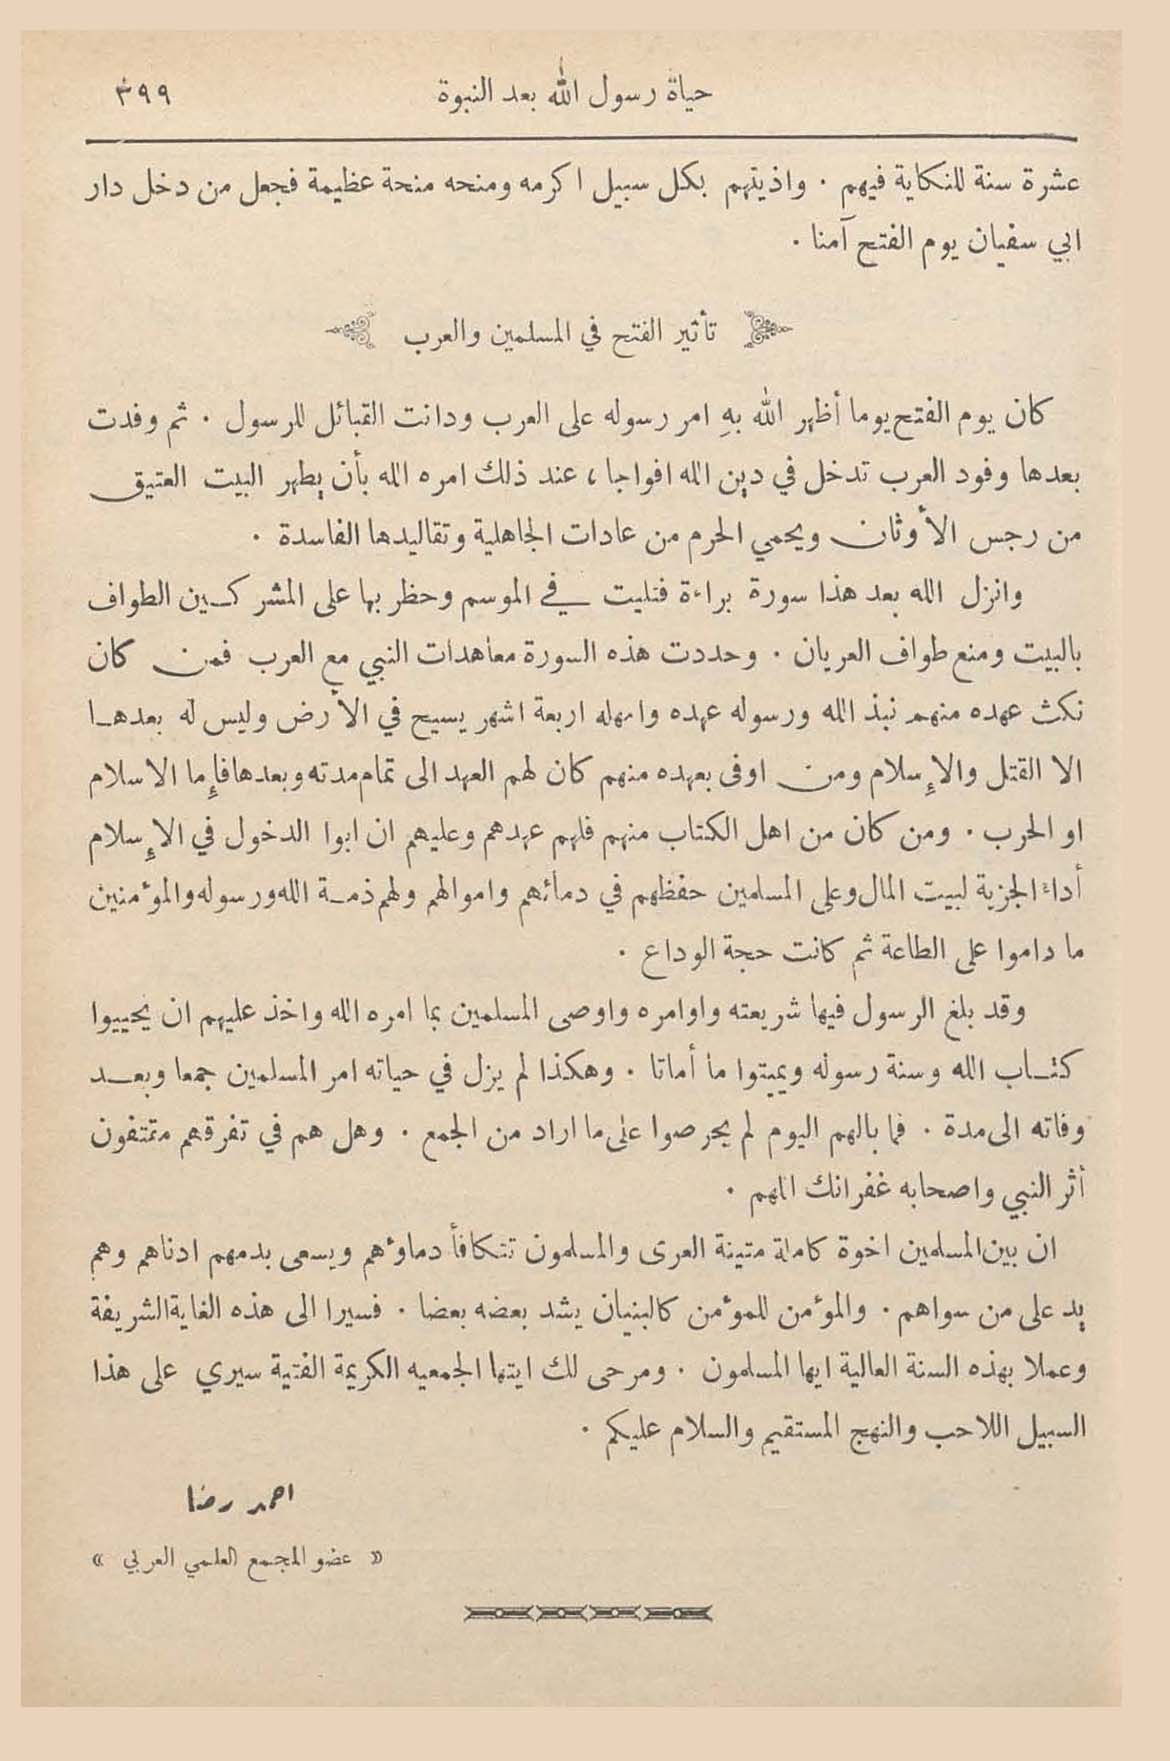 حياة رسول الله بعد النبوة ٣٩٩
عشرة سنة للنكاية فيهم . واذيتهم بكل سبيل اكرمه ومنحه منحة عظيمة فجعل من دخل دار
ابي سفيان يوم الفتح آمنا .
تأثير الفتح في المسلمين والعرب
كان يوم الفتح يوما أظهر الله بهِ امر رسوله على العرب ودانت القبائل للرسول . ثم وفدت
بعدها وفود العرب تدخل في دين الله افواجا ، عند ذلك امره الله بأن يطهر البيت العتيق
من رجس الأوثان ويحمي الحرم من عادات الجاهلية وتقاليدها الفاسدة .
وانزل الله بعد هذا سورة براءة فتليت في الموسم وحظر بها على المشركـين الطواف
بالبيت ومنع طواف العريان . وحددت هذه السورة معاهدات النبي مع العرب فمن كان
نكث عهده منهم نبذ الله ورسوله عهده وامهله اربعة اشهر يسيح في الأرض وليس له بعدهـا
الا القتل والإسلام ومن اوفى بعهده منهم كان لهم العهد الى تمام مدته وبعدها فإما الاسلام
او الحرب . ومن كان من اهل الكتاب منهم فلهم عهدهم وعليهم ان ابوا الدخول في الإسلام
أداء الجزية لبيت المال وعلى المسلمين حفظهم في دمائهم واموالهم ولهم ذمـة الله ورسوله والمؤمنين
ما داموا على الطاعة ثم كانت حجة الوداع .
وقد بلغ الرسول فيها شريعته واوامره واوصى المسلمين بما امره الله واخذ عليهم ان يحييوا
كتـاب الله وسنة رسوله ويميتوا ما أماتا . وهكذا لم يزل في حياته امر المسلمين جمعا وبعـد
وفاته الى مدة . فما بالهم اليوم لم يحرصوا على ما اراد من الجمع . وهل هم في تفرقهم متقفون
أثر النبي واصحابه غفرانك اللهم .
ان بين المسلمين اخوة كاملة متينة العرى والمسلمون تتكافأ دماؤهم ويسعى بدمهم ادناهم وهم
يد على من سواهم . والمؤمن للمؤمن كالبنيان يشد بعضه بعضا . فسيرا الى هذه الغاية الشريفة
وعملا بهذه السنة العالية ايها المسلمون . ومرحى لك ايتها الجمعيه الكريمة الفتية سيري على هذا
السبيل اللاحب والنهج المستقيم والسلام عليكم .
احمد رضا
« عضو المجمع العلمي العربي »